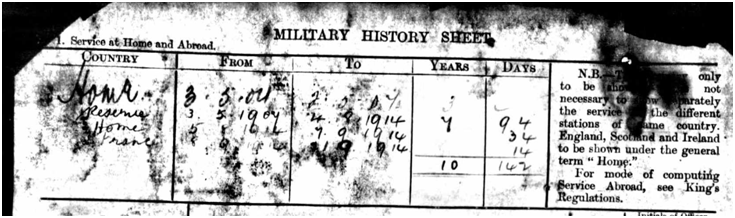 MILITARY HISTORY SHEET
1. Service at Home and Abroad.
COUNTRY FROM TO YEARS DAYS
Home 3.5.04
Reserve 3 5 1907 4 8 1914 7 94
Home 5 8 1914 7 9 1914 34
France 8 9 14 21 9 1914 14
10 142
N.B.— only
to be not
necessary to separately
the service the different
stations of same country.
England, Scotland and Ireland
to be shown under the general
term "Home."
For mode of computing
Service Abroad, see King's
Regulations.
Initials of Officer